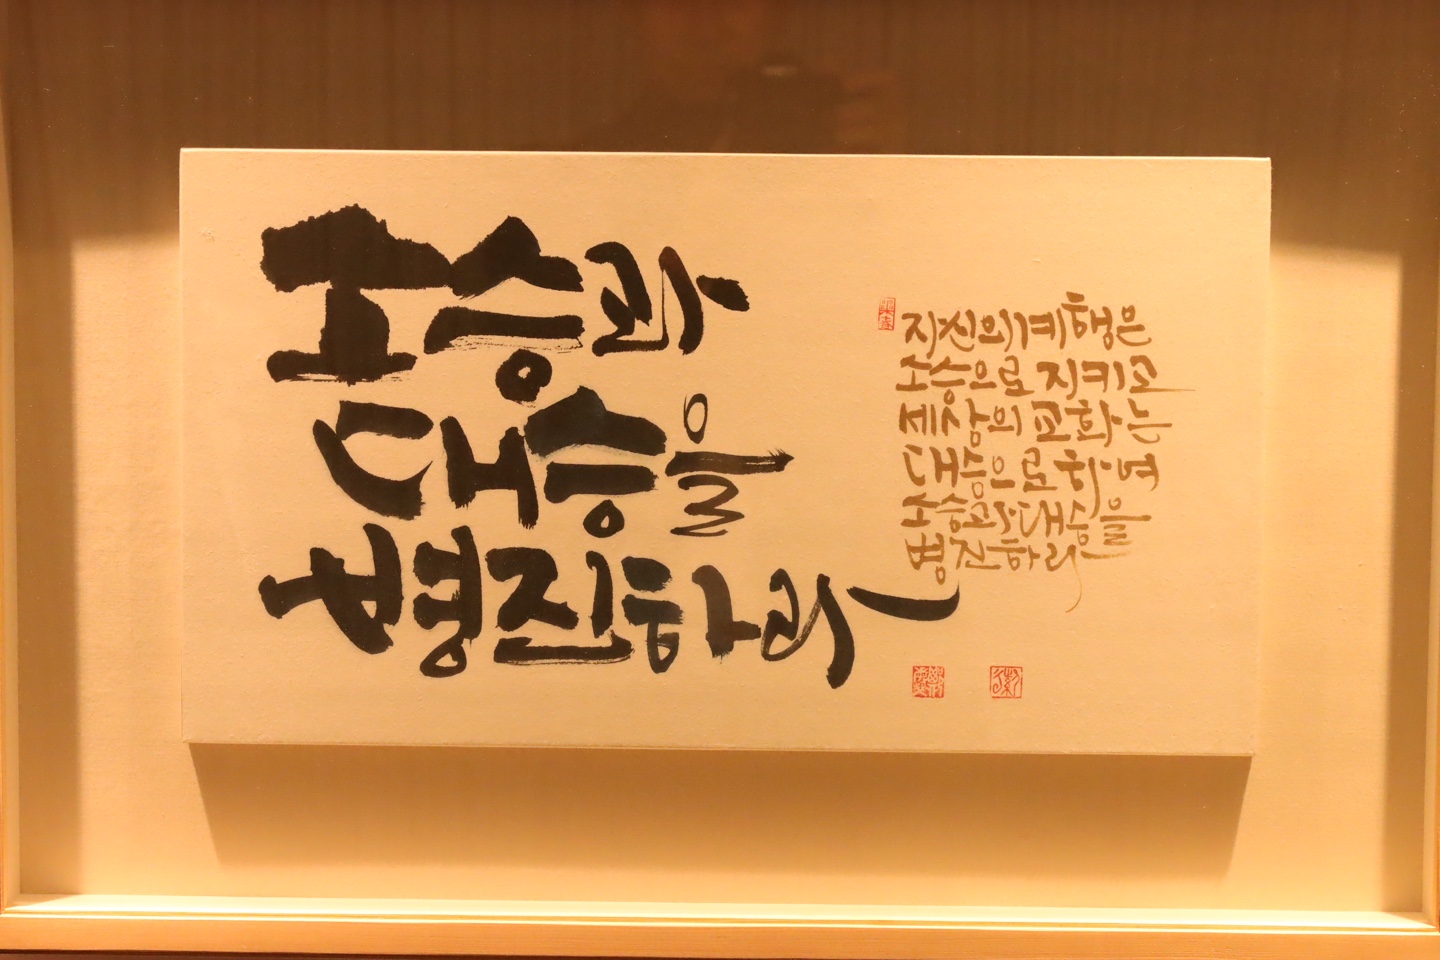 소승과
대승을
병진하라
자신의 계행은
소승으로 지키고
세상의 교화는
대승으로 하며
소승과 대승을
병진하라